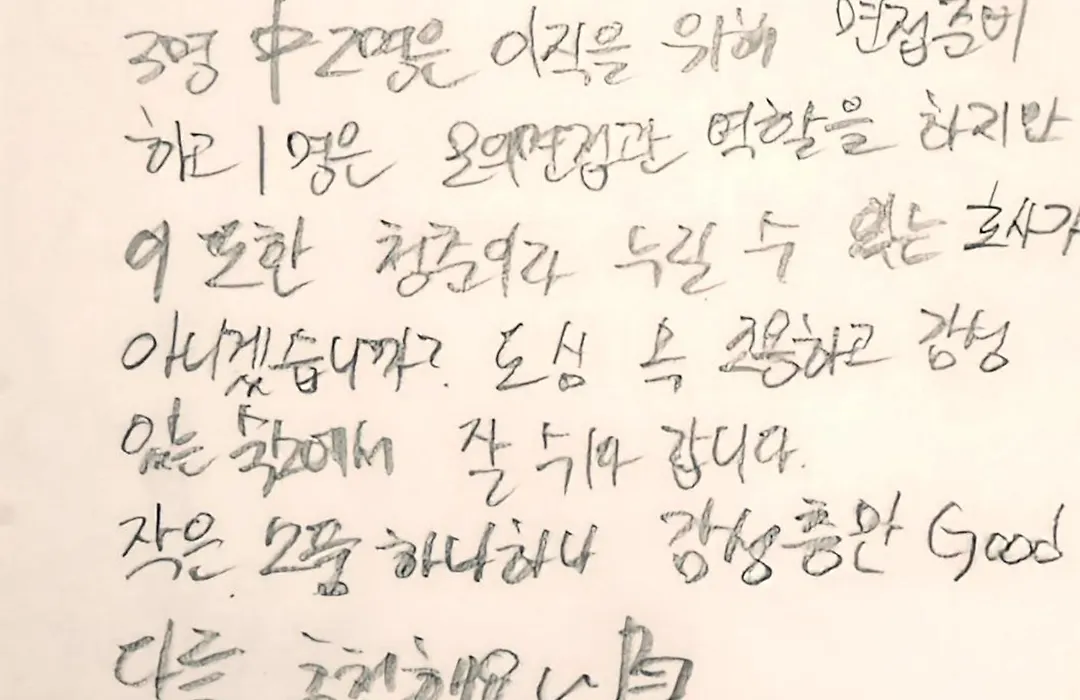 3명 中 2명은 이직을 위해 면접준비
하고 1명은 모의면접관 역할을 하지만
이 또한 청춘이라 누릴 수 있는 호사가
아니겠습니까? 도심 속 조용하고 감성
있는 숙소에서 잘 쉬다 갑니다.
작은 소품 하나하나 감성충만 Good
다들 추천해요